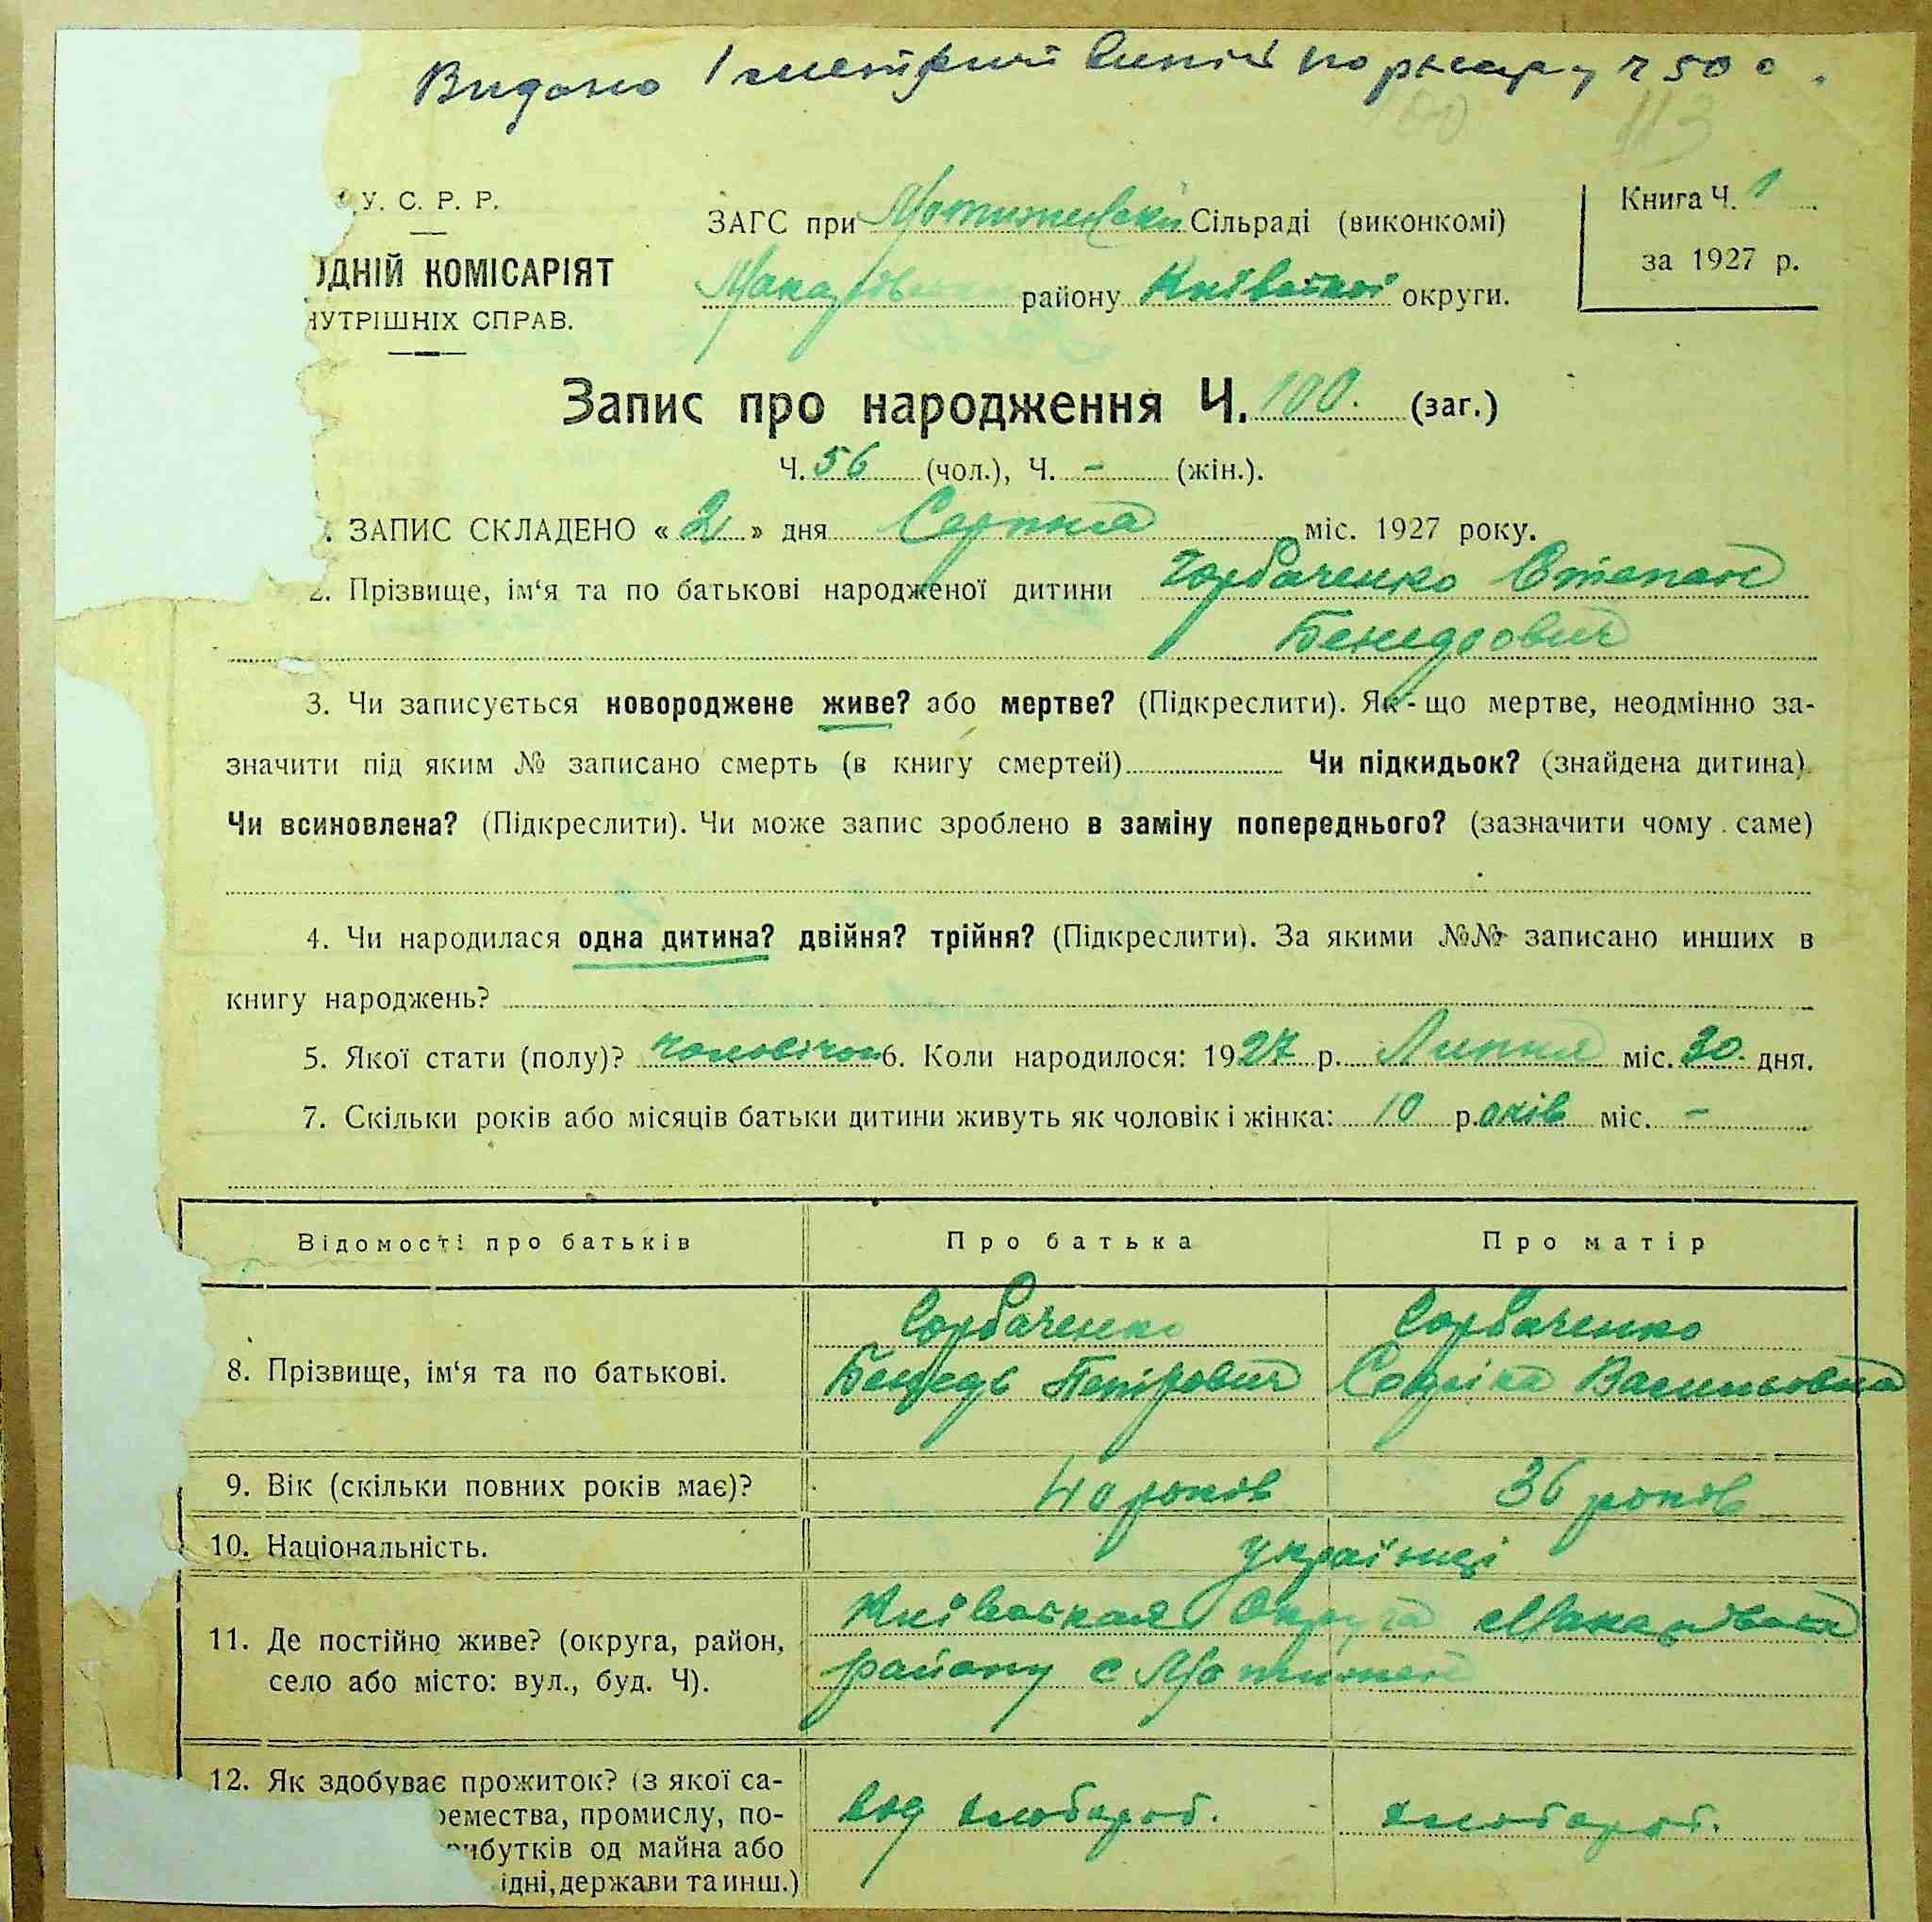 Видано
113
У. С. Р. Р.
ОДНІЙ КОМІСАРІЯТ
НУТРІШНІХ СПРАВ.
ЗАГС при Мотижинській Сільраді (виконкомі)
Макарівського району Київської округи.
Книга Ч. 1
за 1927 р.
Запис про народження Ч. 100. (заг.)
Ч. 56 (чол.), Ч. - (жін.).
ЗАПИС СКЛАДЕНО « 2 » дня Серпня міс. 1927 року.
2. Прізвище, ім‘я та по батькові народженої дитини Горбаченко Степан
Бенедьович
3. Чи записується новороджене живе? або мертве? (Підкреслити). Як-що мертве, неодмінно за-
значити під яким № записано смерть (в книгу смертей) Чи підкидьок? (знайдена дитина)
Чи всиновлена? (Підкреслити). Чи може запис зроблено в заміну попереднього? (зазначити чому саме)
4. Чи народилася одна дитина? двійня? трійня? (Підкреслити). За якими №№ записано инших в
книгу народжень?
5. Якої стати (полу)? чоловічої 6. Коли народилося: 1927 р. Липня міс. 30. дня.
7. Скільки років або місяців батьки дитини живуть як чоловік і жінка: 10 р.оків міс. -
Відомості про батьків Про батька Про матір
Горбаченко Горбаченко
8. Прізвище, ім‘я та по батькові. Бенедь Петрович Василівна
9. Вік (скільки повних років має)? 40 років 36 років
10. Національність. українці
11. Де постійно живе? (округа, район, Київськая Округа Макарівська
село або місто: вул., буд. Ч). району с Мотижен
12. Як здобуває прожиток? (з якої са-
ремества, промислу, по- від хлібороб. хлібороб.
рибутків од майна або
ідні, держави та инш.)